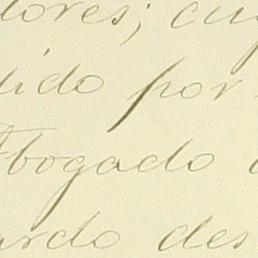 dores; cu
dido por
Abogado
ardo des